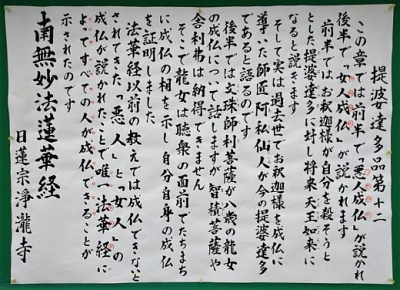 提婆達多品第十二
この章では前半で「悪人成仏」が説かれ
後半で「女人成仏」が説かれます
前半ではお釈迦様が自分を殺そうと
した提婆達多に対し将来天王如来に
なると説きます
そして実は過去世でお釈迦様を成仏に
導いた師匠阿私仙人が今の提婆達多
であると語るのです
後半では文珠師利菩薩が八歳の龍女
の成仏について話しますが智積菩薩や
舎利弗は納得できません
そこで龍女は聴衆の面前でたちまち
に成仏の相を示し自分自身の成仏
を証明しました
法華経以前の教えでは成仏できないと
されてきた「悪人」と「女人」の
成仏が説かれたことで唯一法華経に
よってすべての人が成仏できることが
示されたのです
南無妙法蓮華経
日蓮宗浄瀧寺